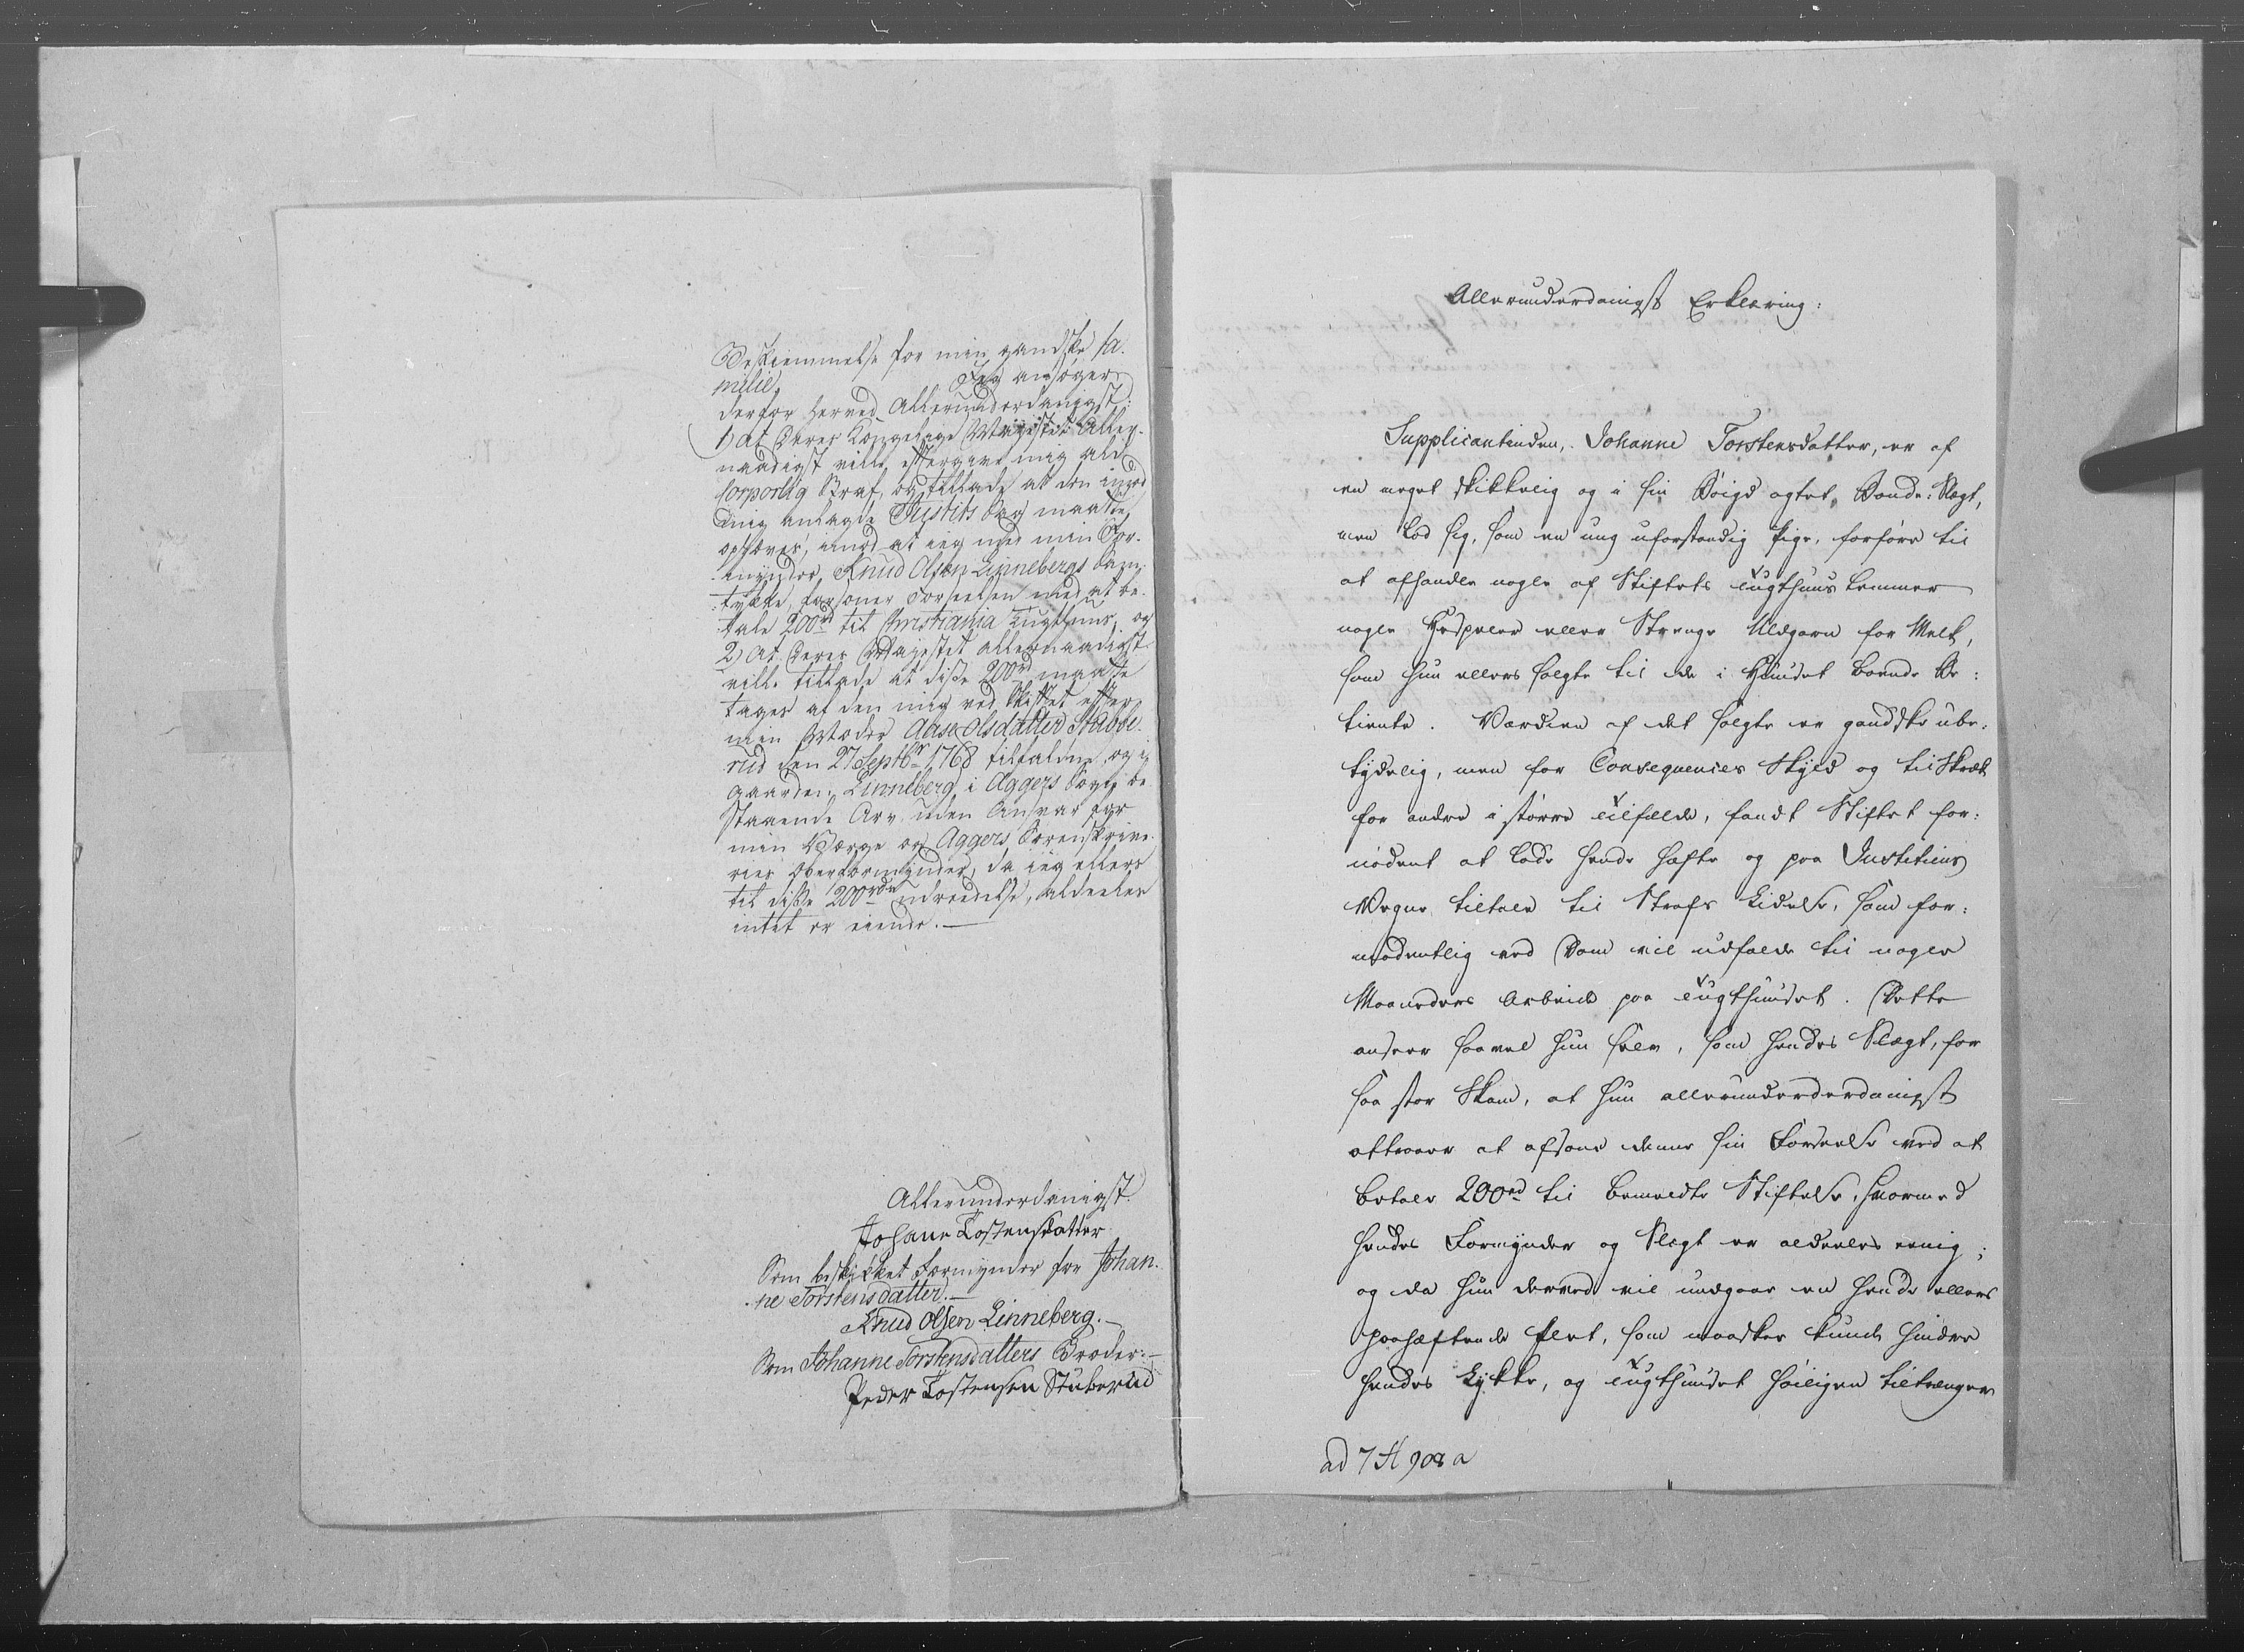 Beskiemmelse for min gandske fa-
milie. Jeg ansøger
derfor herved Allerunderdanigst:
1) At Deres Kongelige Mayestet Aller-
naadigst ville eftergive mig ald
corporlig Straf, og tillade at den imod
mig anlagde Justits Sag maatte
ophæves, imod at ieg med min For-
mynder Knud Olsen Linnebergs Sam-
tykke, forsoner Forseelsen med at be-
tale 200rd til Christiania Tugthuus, og
2) At Deres Mayestet allernaadigst
ville tillade at disse 200rd maatte
tages af den mig ved Skiftet efter
min Moder Aase Olsdatter Stubbe-
rud den 27 Septbr 1768 tilfaldne, og i
Gaarden Linneberg i Aggers Sogn be-
staaende Arv uden Ansvar for
min Værge og Aggers Sorenskrive-
ries Overformynder, da ieg ellers
til disse 200rds udreedelse, aldeeles
intet er eiende.—
Allerunderdanigst.
Johane Tostensdatter
Som beskikket Formynder for Johan-
ne Torstensdatter.—
Knud Olsen Linneberg.—
Som Johanne Torstensdatters Broder:—
Peder Tostensen Stuberud
Allerunderdanigst Erklæring:
Supplicantinden, Johanne Torstensdatter, er af
en meget skikkelig og i sin Bøigd agtet Bonde-Slægt,
men lod sig, som en ung uforstandig Pige, forføre til
at afhandle nogle af Stiftets Tugthuus Lemmer
nogle Hespeler eller Strenge Uldgarn for Melk,
som hun ellers solgte til de i Huuset boende Be-
tiente. Værdien af det solgte er gandske ube-
tydelig, men for Consequences Skyld og til Skræk
for andre i større Tilfælde, fandt Stiftet for-
nødent at lade hende hæfte og paa Justitiens
Vegne tiltale til Straf Lidelse, som for-
modentlig ved Dom vil udfalde til nogle
Maaneders Arbeide paa Tugthuuset. Dette
anseer saavel hun selv, som hendes Slægt, for
saa stor Skam, at hun allerunderderdanigst
attraaer at afsone denne sin Forseelse ved at
betale 200rd til bemeldte Stiftelse, hvormed
hendes Formynder og Slægt er aldeeles eenig;
og da hun derved vil undgaae en hende ellers
paahæftende Plet, som maaskee kunde hindre
hendes Lykke, og Tugthuuset høiligen tiltrænger
ad 7 H 908 a